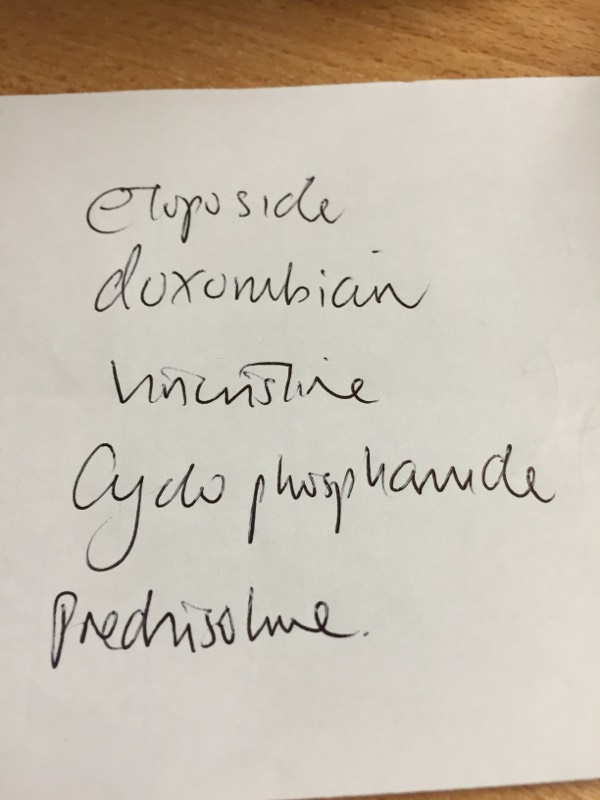 etoposide
doxorubicin
vincristine
Cyclo phosphamide
Prednisolone.